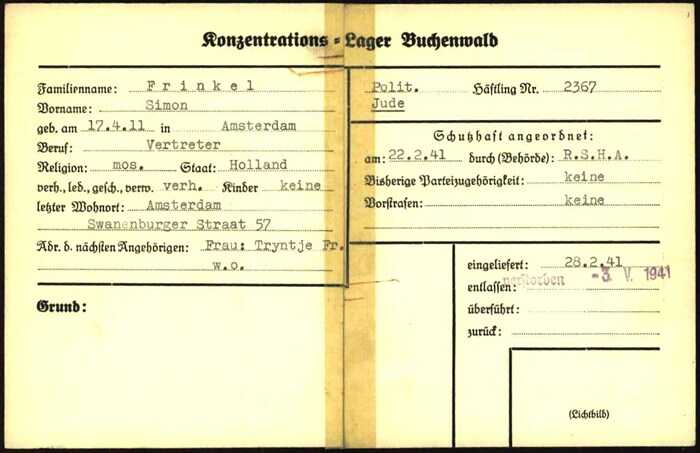 Konzentrations-Lager Buchenwald
Familienname: Frinkel
Vorname: Simon
geb. am 17.4.11 in Amsterdam
Beruf: Vertreter
Religion: mos. Staat: Holland
verh., led., gesch., verw. verh. Kinder keine
letzter Wohnort: Amsterdam
Swanenburger Straat 57
Adr. d. nächsten Angehörigen: Frau: Tryntje Fr.
w.o.
Grund:
Polit. Häftling Nr. 2367
Jude
Schutzhaft angeordnet:
am: 22.2.41 durch (Behörde): R.S.H.A.
Bisherige Parteizugehörigkeit: keine
Vorstrafen: keine
eingeliefert: 28.2.41
entlassen: verstorben -3. V. 1941
überführt:
zurück:
(Lichtbild)